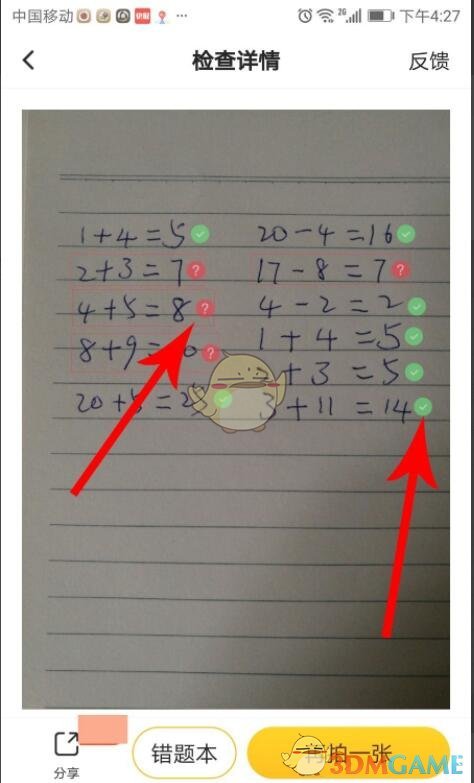 中国移动 2G 下午4:27
检查详情 反馈
1+4=5 20-4=16
2+3=7 17-8=7
4+5=8 4-2=2
8+9= 1+4=5
+3=5
20+5=25 3+11=14
分享 错题本 再拍一张
3DMGAME